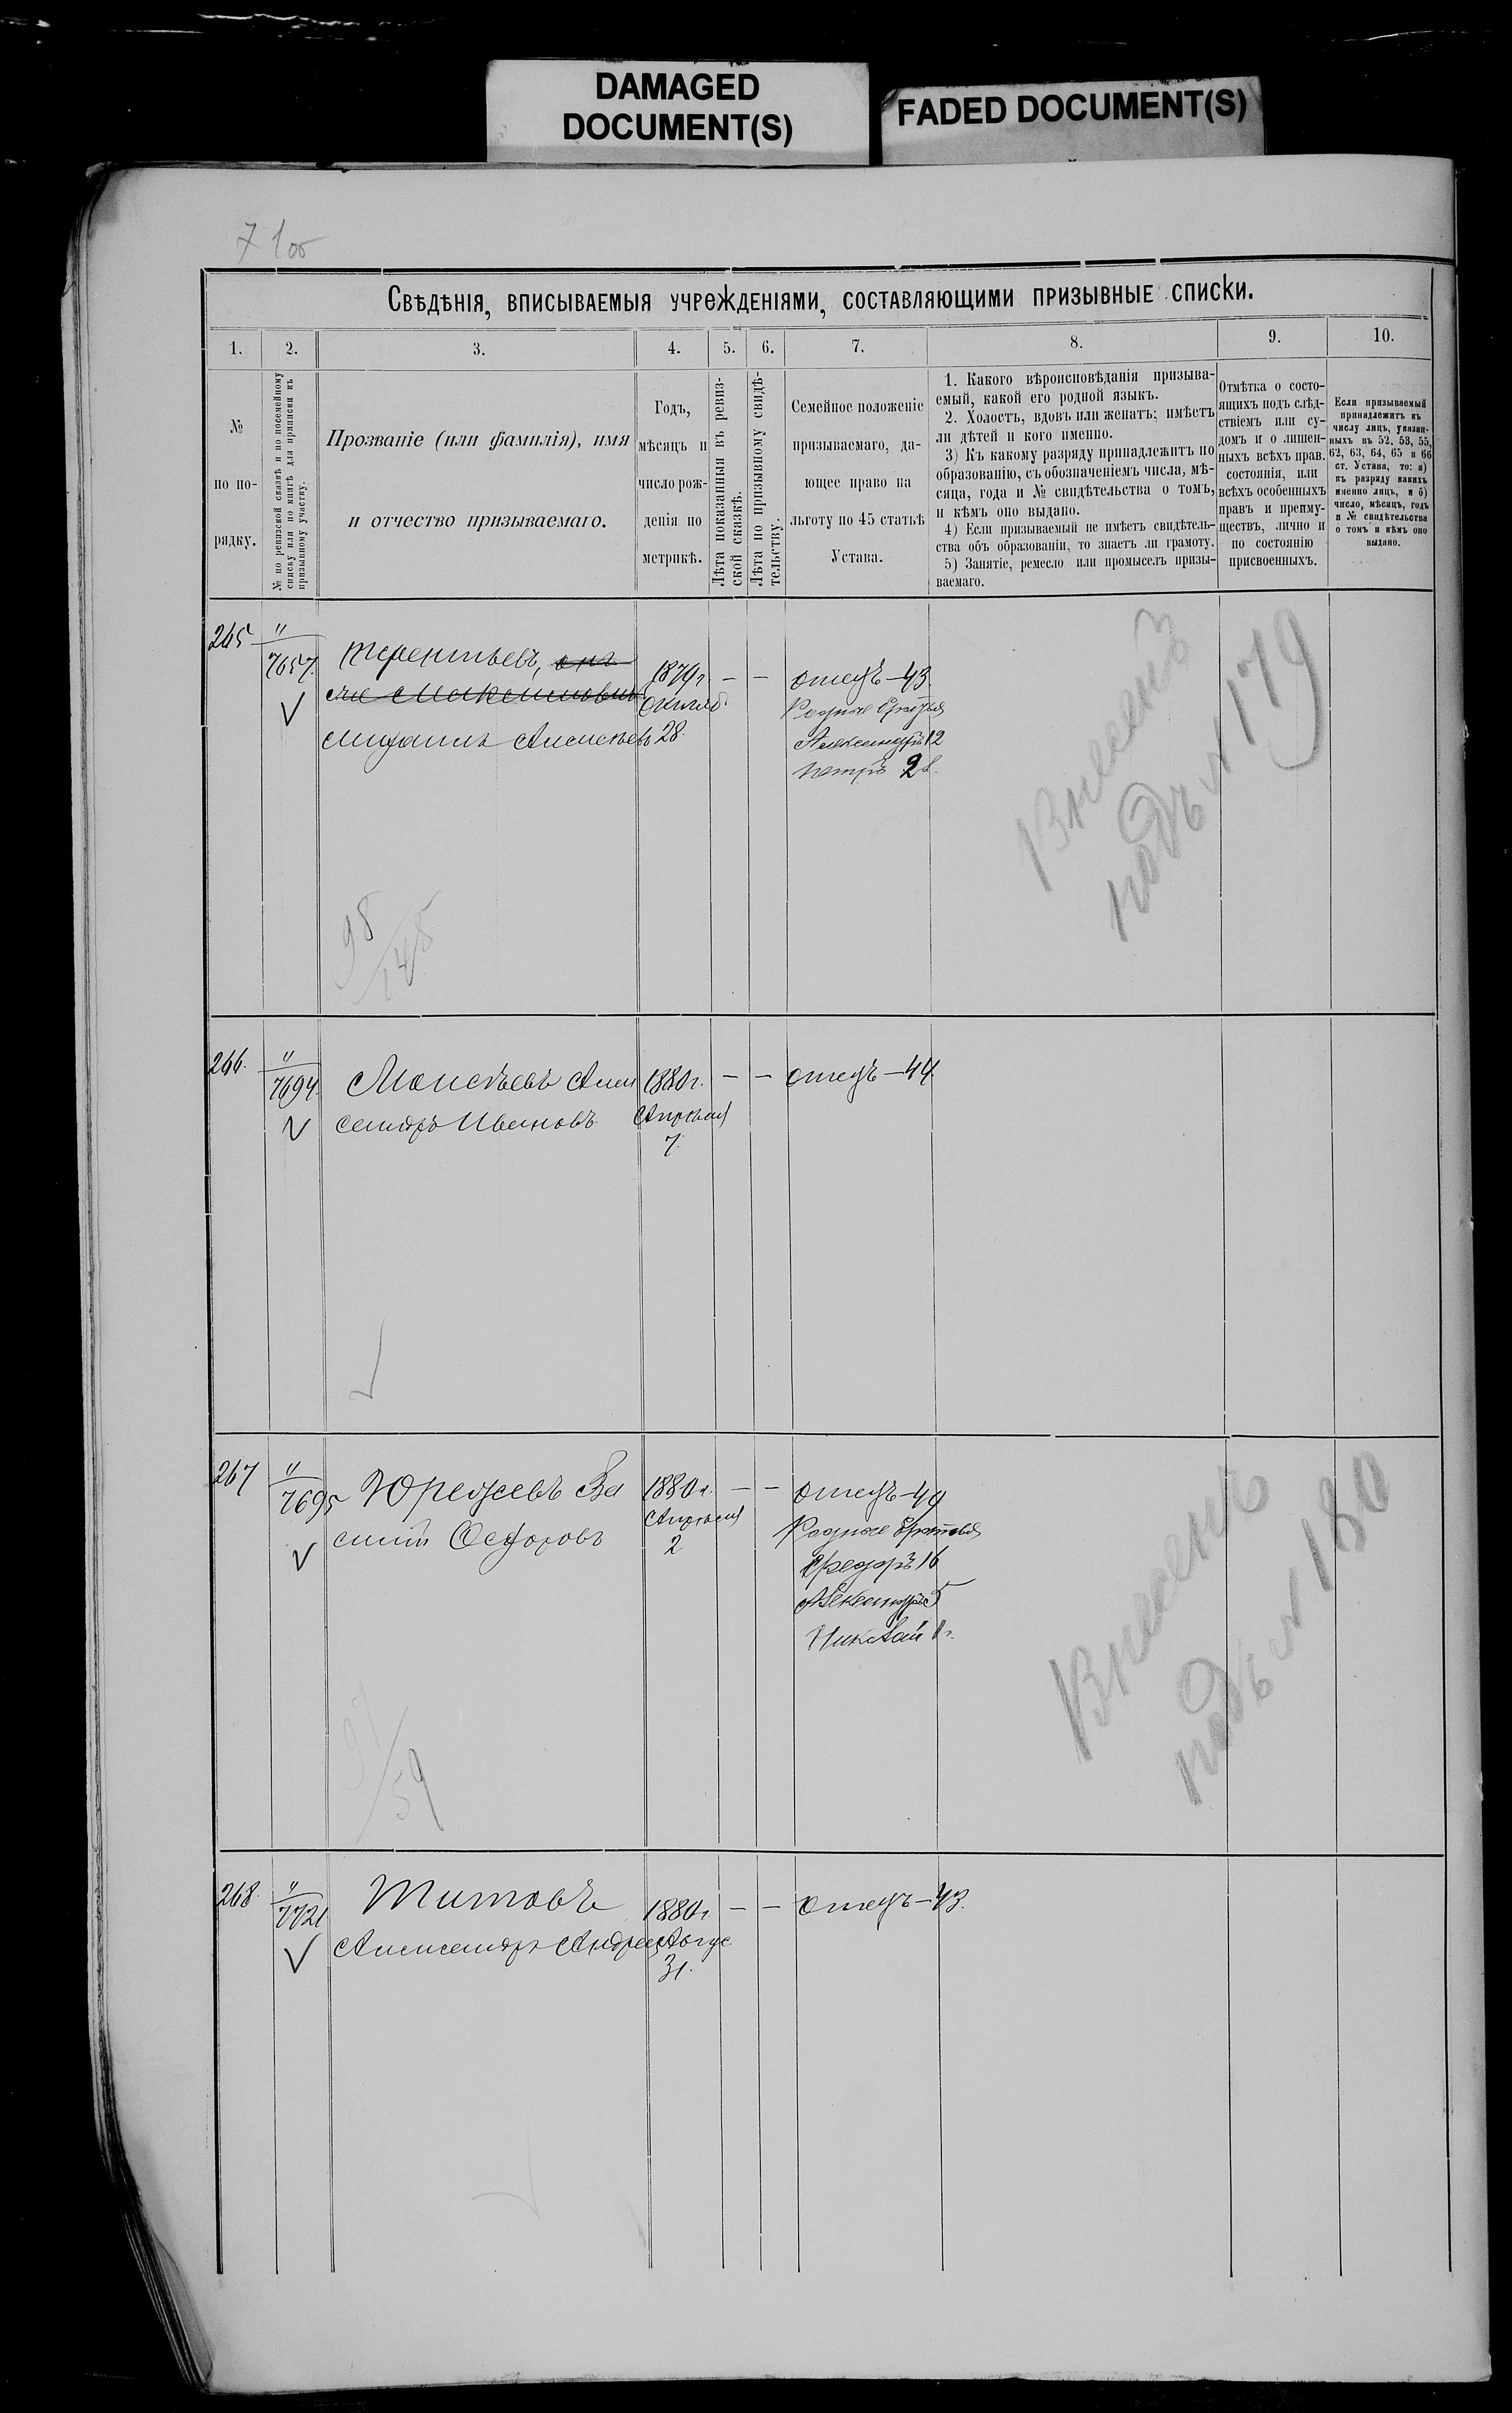 DAMAGED
DOCUMENT(S)
FADED DOCUMENT(S)
Свѣдѣнія, вписываемыя учрежденіями, составляющими призывные списки.
1.
2.
3.
4.
5.
6.
7.
8.
9.
10.
№
по по-
рядку.
№ по ревизской сказкѣ и по посемейному
списку или по книгѣ для приписки къ
призывному участку.
Прозваніе (или фамилія), имя
и отчество призываемаго.
Годъ,
мѣсяцъ и
число рож-
денія по
метрикѣ.
Лѣта показанныя въ ревиз-
ской сказкѣ.
Лѣта по призывному свидѣ-
тельству.
Семейное положеніе
призываемаго, да-
ющее право на
льготу по 45 статьѣ
Устава.
1. Какого вѣроисповѣданія призыва-
емый, какой его родной языкъ.
2. Холостъ, вдовъ или женатъ; имѣетъ
ли дѣтей и кого именно.
3) Къ какому разряду принадлежитъ по
образованію, съ обозначеніемъ числа, мѣ-
сяца, года и № свидѣтельства о томъ,
и кѣмъ оно выдано.
4) Если призываемый не имѣетъ свидѣтель-
ства объ образованіи, то знаетъ ли грамоту.
5) Занятіе, ремесло или промыселъ призы-
ваемаго.
Отмѣтка о состо-
ящихъ подъ слѣд-
ствіемъ или су-
домъ и о лишен-
ныхъ всѣхъ прав.
состоянія, или
всѣхъ особенныхъ
правъ и преиму-
ществъ, лично и
по состоянію
присвоенныхъ.
Если призываемый
принадлежитъ къ
числу лицъ, указан-
ныхъ въ 52, 53, 55,
62, 63, 64, 65 и 66
ст. Устава, то: а)
къ разряду какихъ
именно лицъ, и б)
число, мѣсяцъ, годъ
и № свидѣтельства
о томъ и кѣмъ оно
выдано.
265
"
7657.
Терентьевъ,
Михаилъ Алексѣевъ
1879г.
28.
— —
отецъ — 43.
Родные братья
Александръ 12
Петръ 2
Внесенъ
подъ № 179
98/148
266.
"
7694.
Моисѣевъ Алек
сандръ Ивановъ
1880г.
Апрѣля
7.
— —
отецъ — 44.
267
"
7695
Юрежевъ Ва
силій Ѳедоровъ
1880г.
Апрѣля
2
— —
отецъ — 49
Родные братья
Ѳедоръ 16
Александръ 5
Николай
Внесенъ
подъ № 180
97/59
268.
"
7721
Титовъ
Александръ Андреев
1880г.
Авгус
31.
— —
отецъ — 43.